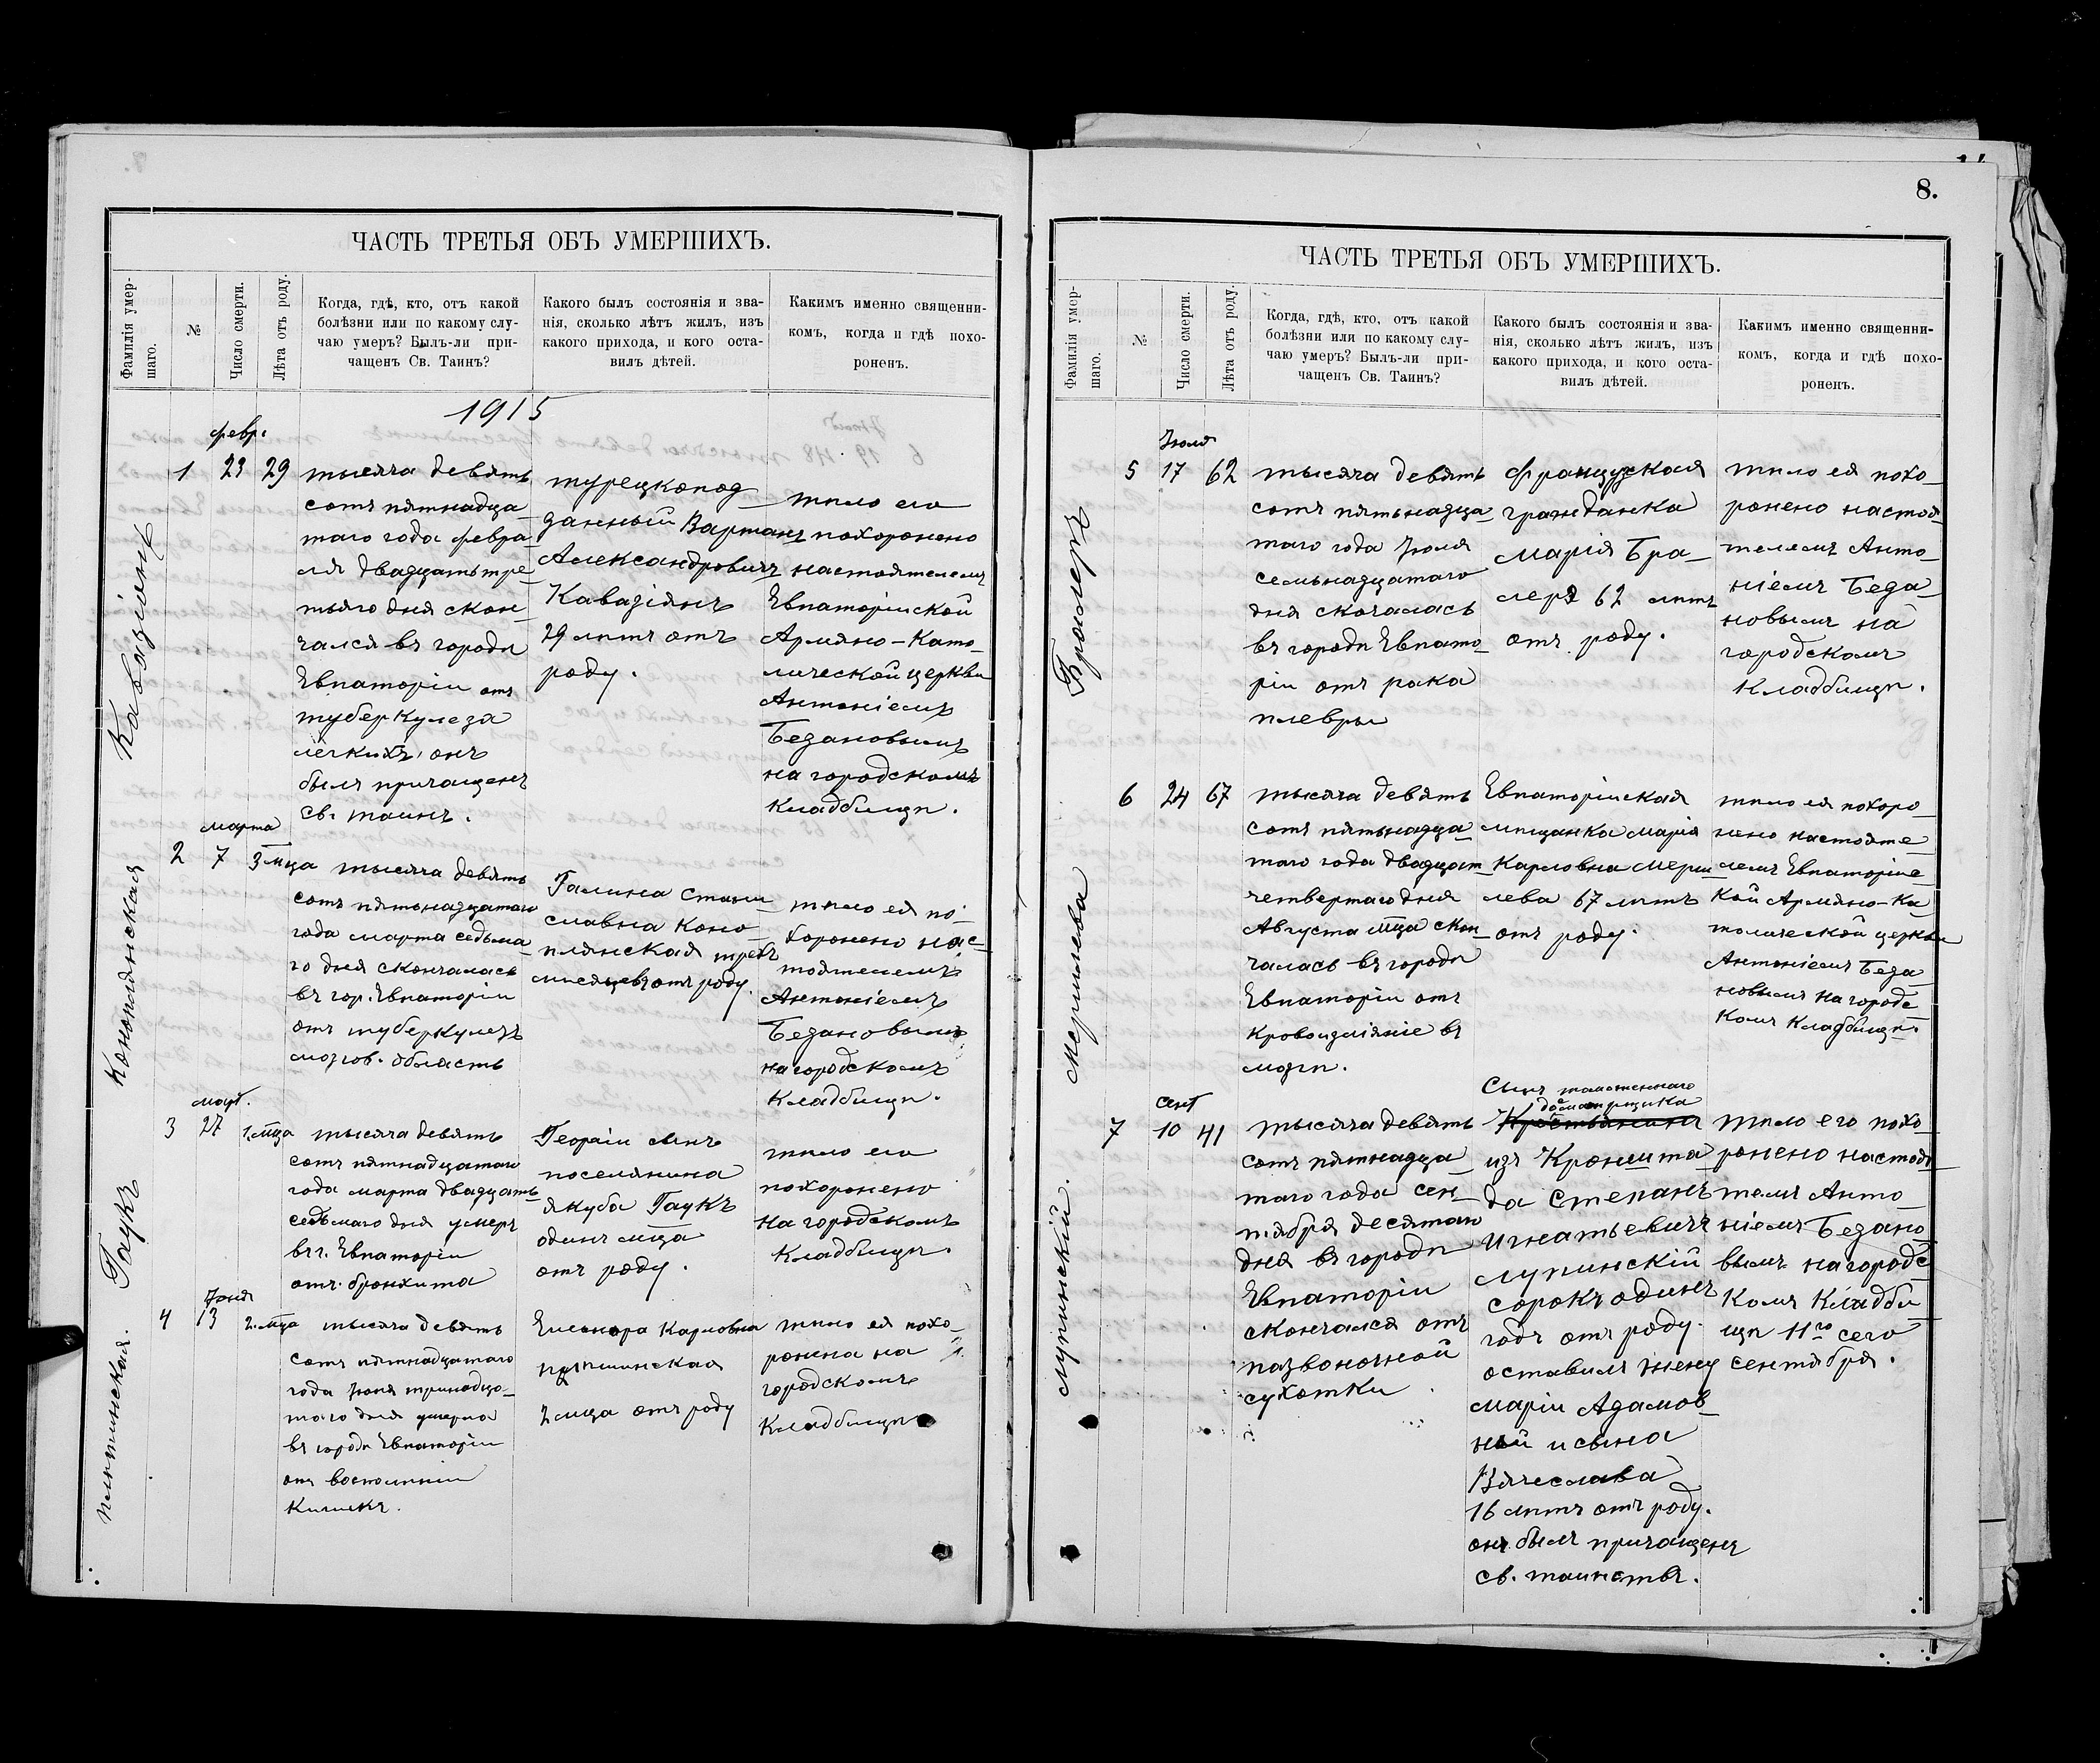 ЧАСТЬ ТРЕТЬЯ ОБЪ УМЕРШИХЪ.
Фамилія умер-
шаго.
№
Число смерти.
Лѣта отъ роду.
Когда, гдѣ, кто, отъ какой
болѣзни или по какому слу-
чаю умеръ? Былъ-ли при-
чащенъ Св. Таинъ?
Какого былъ состоянія и зва-
нія, сколько лѣтъ жилъ, изъ
какого прихода, и кого оста-
вилъ дѣтей.
Какимъ именно священни-
комъ, когда и гдѣ похо-
роненъ.
1915
Кавазіянъ
февр.
1 23 29
тысяча девять
сотъ пятнадца
таго года февра-
ля двадцать тре-
тьяго дня скон
чался въ городѣ
Евпаторіи отъ
туберкулеза
легкихъ, онъ
былъ причащенъ
св. таинъ.
турецкопод
данный Вартанъ
Александровичъ
Кавазіянъ
29 лѣтъ отъ
роду.
тѣло его
похоронено
настоятелемъ
Евпаторійской
Армяно-Като-
лической церкви
Антоніемъ
Безановымъ
на городскомъ
кладбищѣ.
Конопянская
марта
2 7 3 мца
тысяча девять
сотъ пятьнадцатаго
года марта седьма
го дня скончалась
въ гор. Евпаторіи
отъ туберкулезъ
мозгов. область
Галина Стани
славна Коно-
плянская трехъ
мѣсяцевъ отъ роду.
тѣло ея по-
хоронено нас-
тоятелемъ
Антоніемъ
Безановымъ
на городскомъ
кладбищѣ.
Гаукъ
март.
3 27 1. мца
тысяча девять
сотъ пятнадцатаго
года марта двадцать
седьмаго дня умеръ
въ г. Евпаторіи
отъ бронхита
Георгіи сынъ
поселянина
Якуба Гаукъ
одинъ мца
отъ роду.
тѣло его
похоронено
на городскомъ
кладбищѣ.
Іюня
4 13 2. мца
тысяча девять
сотъ пятнадцатаго
года Іюня тринадца-
таго дня умерла
въ городѣ Евпаторіи
отъ воспаленіи
кишекъ.
Елеонора Карловна
2 мца отъ роду
тѣло ея похо-
ронена на
городскомъ
кладбищѣ
8.
ЧАСТЬ ТРЕТЬЯ ОБЪ УМЕРШИХЪ.
Фамилія умер-
шаго.
№
Число смерти.
Лѣта отъ роду.
Когда, гдѣ, кто, отъ какой
болѣзни или по какому слу-
чаю умеръ? Былъ-ли при-
чащенъ Св. Таинъ?
Какого былъ состоянія и зва-
нія, сколько лѣтъ жилъ, изъ
какого прихода, и кого оста-
вилъ дѣтей.
Какимъ именно священни-
комъ, когда и гдѣ похо-
роненъ.
Іюля
5 17 62
тысяча девять
сотъ пятьнадца
таго года Іюля
семьнадцатаго
дня скочалась
въ городѣ Евпато
ріи отъ рака
плевры
Французская
гражданка
Марія Бра-
лерѣ 62 лѣтъ
отъ роду.
тѣло ея похо-
ронено настоя-
телемъ Анто-
ніемъ Беза-
новымъ на
городскомъ
кладбищѣ.
Мерщлева
6 24 67
тысяча девять
сотъ пятьнадца
таго года двадцат
четвертаго дня
Августа мца скон
чалась въ городѣ
Евпаторіи отъ
кровоизліяніе въ
мозги.
Евпаторійская
мѣщанка Марія
Карловна Мерш
лева 67 лѣтъ
отъ роду.
тѣло ея похоро
нено настояте
лемъ Евпаторійс
кой Армяно-Ка
толической церкви
Антоніемъ Беза
новымъ на городс
комъ кладбищѣ.
Лупинскій.
сент
7 10 41
тысяча девять
сотъ пятнадца
таго года сен-
тября десятаго
дня въ городѣ
Евпаторіи
скончался отъ
позвоночной
сухотки
Сынъ таможеннаго
досмотрщика
Крестьянина
изъ Кроншта
да Степанъ
Игнатьевичъ
Лупинскій
сорокъ одинъ
годъ отъ роду.
оставилъ жену
Маріи Адамов
ной и сына
Вячеслава
16 лѣтъ отъ роду.
онъ былъ причащенъ
св. таинствъ.
тѣло его похо-
ронено настоя
телемъ Анто
ніемъ Безано
вымъ на городс
комъ кладби
щѣ 11го сего
сентября.